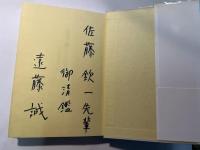 佐藤欽一先輩
御清鑑
遠藤誠